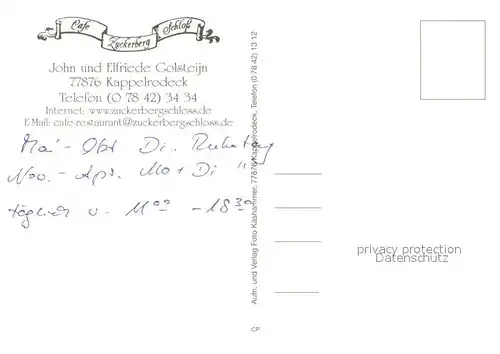 Cafe Zuckerberg Schloß
John und Elfriede Golsteijn
77876 Kappelrodeck
Telefon (0 78 42) 34 34
Internet: www.zuckerbergschloss.de
E-Mail: cafe-restaurant@zuckerbergschloss.de
Mai - Okt Di. Ruhetag
Nov. - Apr. Mo + Di "
täglich v. 11°° - 18³°
Aufn. und Verlag Foto Käshammer, 77876 Kappelrodeck, Telefon (0 78 42) 13 12
CP
privacy protection
Datenschutz